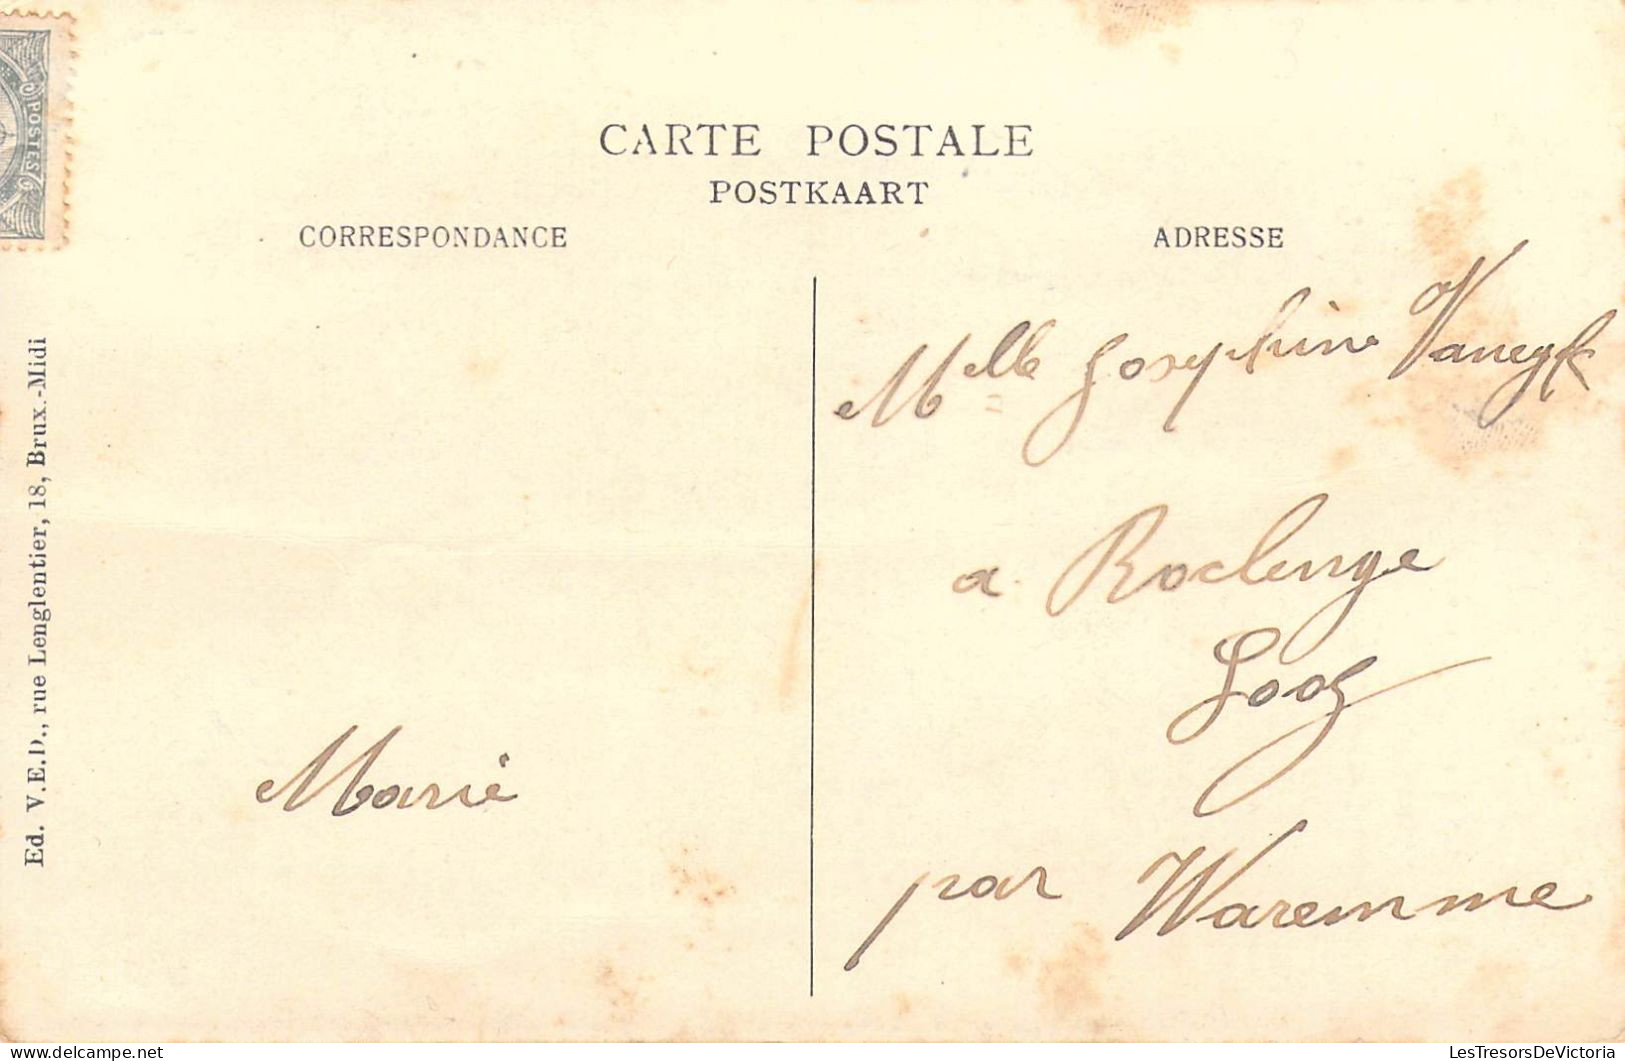 POSTES
CARTE POSTALE
POSTKAART
CORRESPONDANCE
ADRESSE
Ed. V.E.D., rue Lenglentier, 18, Brux.-Midi
Marie
Melle Josephine Vaneyk
a Roclenge
Looz
par Waremme
LesTresorsDeVictoria
www.delcampe.net